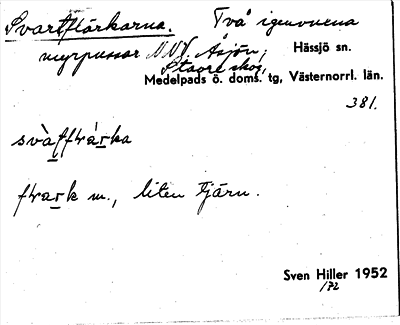 Svartflärkarna. Två igenvuxna
myrpussar NNV. Åsjön; Hässjö sn.
Staure skog,
Medelpads ö. doms. tg, Västernorrl. län.
381.
svàt̠ftrár̠ka
ftrar̠k m., liten tjärn.
Sven Hiller 1952
/72